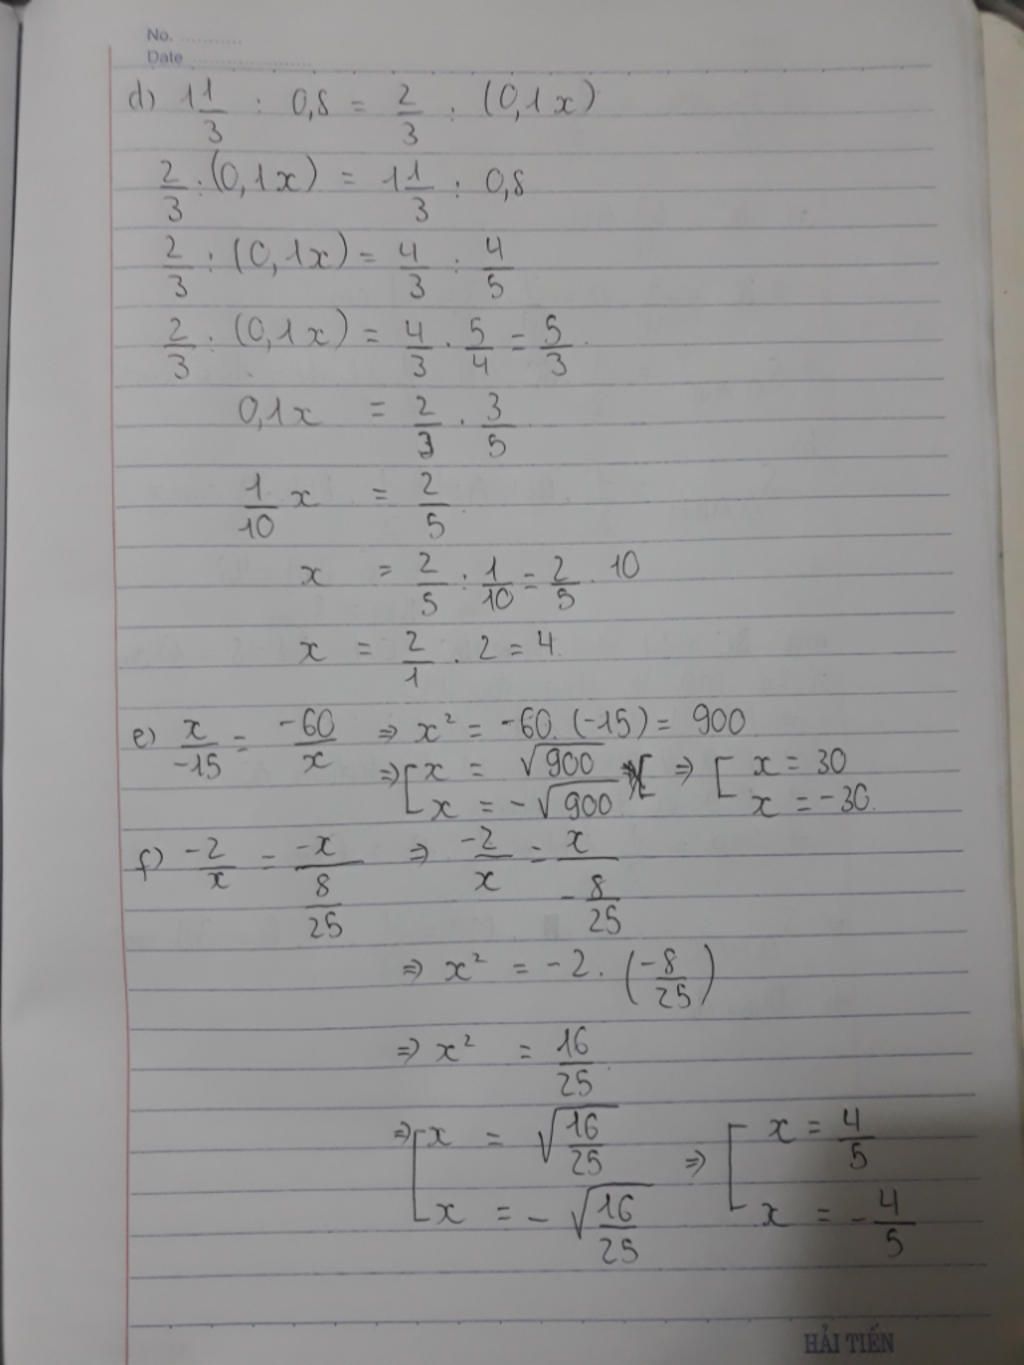 No. ...........
Date .....................
d) 1 1/3 : 0,8 = 2/3 : (0,1x)
2/3 : (0,1x) = 1 1/3 : 0,8
2/3 : (0,1x) = 4/3 : 4/5
2/3 : (0,1x) = 4/3 . 5/4 = 5/3
0,1x = 2/3 . 3/5
1/10 x = 2/5
x = 2/5 : 1/10 = 2/5 . 10
x = 2/1 . 2 = 4
e) x/-15 = -60/x ⇒ x² = -60.(-15) = 900
⇒ [ x = √900 ⇒ [ x = 30
x = -√900 x = -30.
f) -2/x = -x/(8/25) ⇒ -2/x = x/(-8/25)
⇒ x² = -2 . (-8/25)
⇒ x² = 16/25
⇒ [ x = √(16/25) ⇒ [ x = 4/5
x = -√(16/25) x = -4/5
HẢI TIẾN